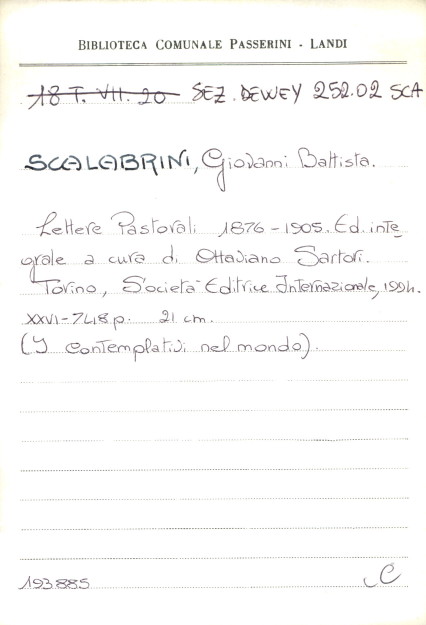 BIBLIOTECA COMUNALE PASSERINI - LANDI
18 T. VII. 20 SEZ. DEWEY 252.02 SCA
SCALABRINI, Giovanni Battista.
Lettere Pastorali 1876-1905. Ed. inte
grale a cura di Ottaviano Sartori.
Torino, Società Editrice Internazionale, 1994.
XXVI-748 p. 21 cm.
(I contemplativi nel mondo).
193.885 C